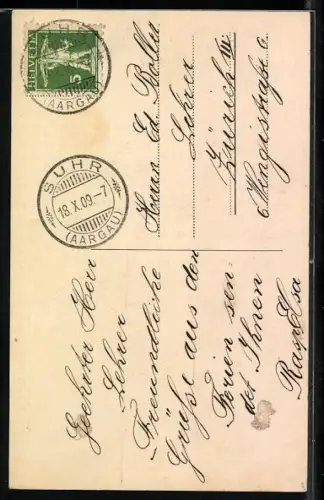 HELVETIA
5
SUHR
(AARGAU)
SUHR
18.X.09.-7
(AARGAU)
Herrn Ed. Bollier
Lehrer
Zürich III
6 Wengistrasse 6.
Geehrter Herr
Lehrer
Freundliche
Grüße aus den
Ferien sen-
det Ihnen
Elsa